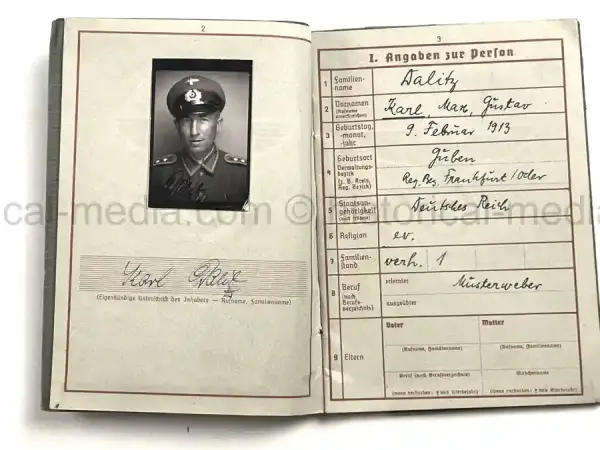 2
Karl Dalitz
(Eigenhändige Unterschrift des Inhabers — Rufname, Familienname)
3
I. Angaben zur Person
1 Familien-
name
Dalitz
2 Vornamen
(Rufname
unterstreichen)
Karl, Max, Gustav
3 Geburtstag,
-monat,
-jahr
9. Februar 1913
4 Geburtsort
Verwaltungs-
bezirk
(z. B. Kreis,
Reg. Bezirk)
Guben
Reg. Bez. Frankfurt/Oder
5 Staatsan-
gehörigkeit
Deutsches Reich
6 Religion
ev.
7 Familien-
stand
verh. 1
8 Beruf
(nach
Berufs-
verzeichnis)
erlernter
Musterweber
ausgeübter
9 Eltern
Vater Mutter
(Rufname, Familienname) (Rufname, Familienname)
Beruf (nach Berufsverzeichnis) Mädchenname
(wenn verstorben: † und Sterbejahr) (wenn verstorben: † und Sterbejahr)
cal-media.com © historical-media